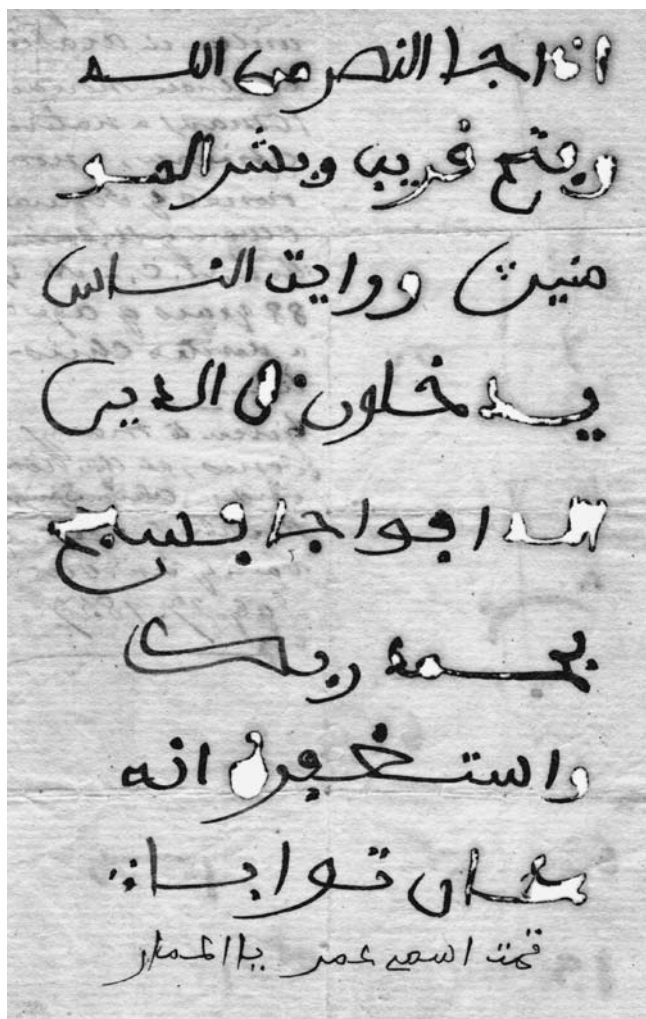 اذا جا النصر من الله
وفتح قريب وبشر المو
منين ورايت الناس
يدخلون فى الدين
الله افواجا فسبح
بحمد ربك
واستغفره انه
كان توابا
تمت اسمى عمر